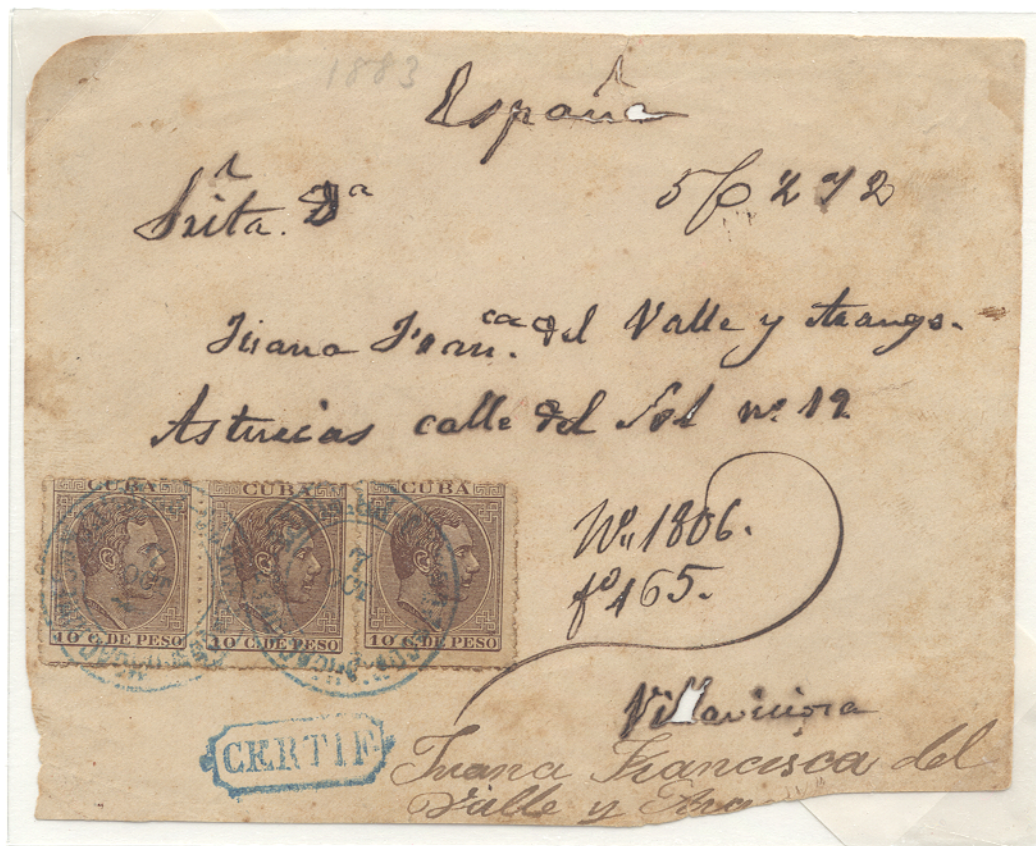 1883
España
Srita. Dª
272
Juana Fran.ca del Valle y Arango.
Asturias calle del Sol nº 19
CUBA CUBA CUBA
10 C. DE PESO 10 C. DE PESO 10 C. DE PESO
Nº 1806.
fº 165.
Villaviciosa
CERTIF
Juana Francisca del
Valle y Ara